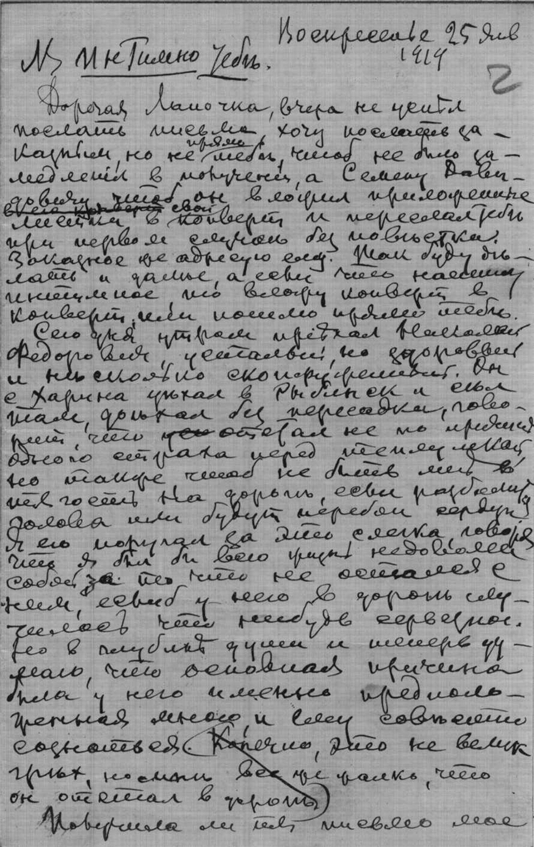 Воскресенье 25 Янв
1919
№ Интимно тебѣ.
2
Дорогая Лапочка, вчера не успѣл
послать письма, хочу послать за-
казным, но не прямо тебѣ, чтоб не было за-
медленія в полученіи, а Семену Давы-
довичу, чтоб он вложил приложенные
листки в свой конверт и переслал тебѣ
при первом случаѣ без повѣстки.
Заказное же адресую ему. Так буду дѣ-
лать и дальше, а если что напишу
интимное, то вложу конверт в
конверт, или пошлю прямо тебѣ.
Сегодня утром пріѣхал Николай
Федорович, усталый, но здоровый
и нисколько не Он
с уѣхал в Рыбинск и сѣл
там, доѣхал без пересадки, гово-
рит, что отстал не по причинѣ
одного страха перед теплушкой,
но также, чтоб не быть мнѣ в
тягость на дорогѣ, если разболится
голова или будут перебои сердца.
Я его поругал за это слегка, говоря
что я был бы всю жизнь недоволен
собой за то что не остался с
ним, если б у него в дорогѣ слу-
чилось что нибудь серьезное.
Но в глубинѣ души и теперь ду-
маю, что основная причина
была у него именно предполо-
женная мною, и ему совѣстно
сознаться. (Конечно, это не велик
грѣх, но мнѣ все же жалко, что
он отстал в дорогѣ)
Получила ли ты письмо мое